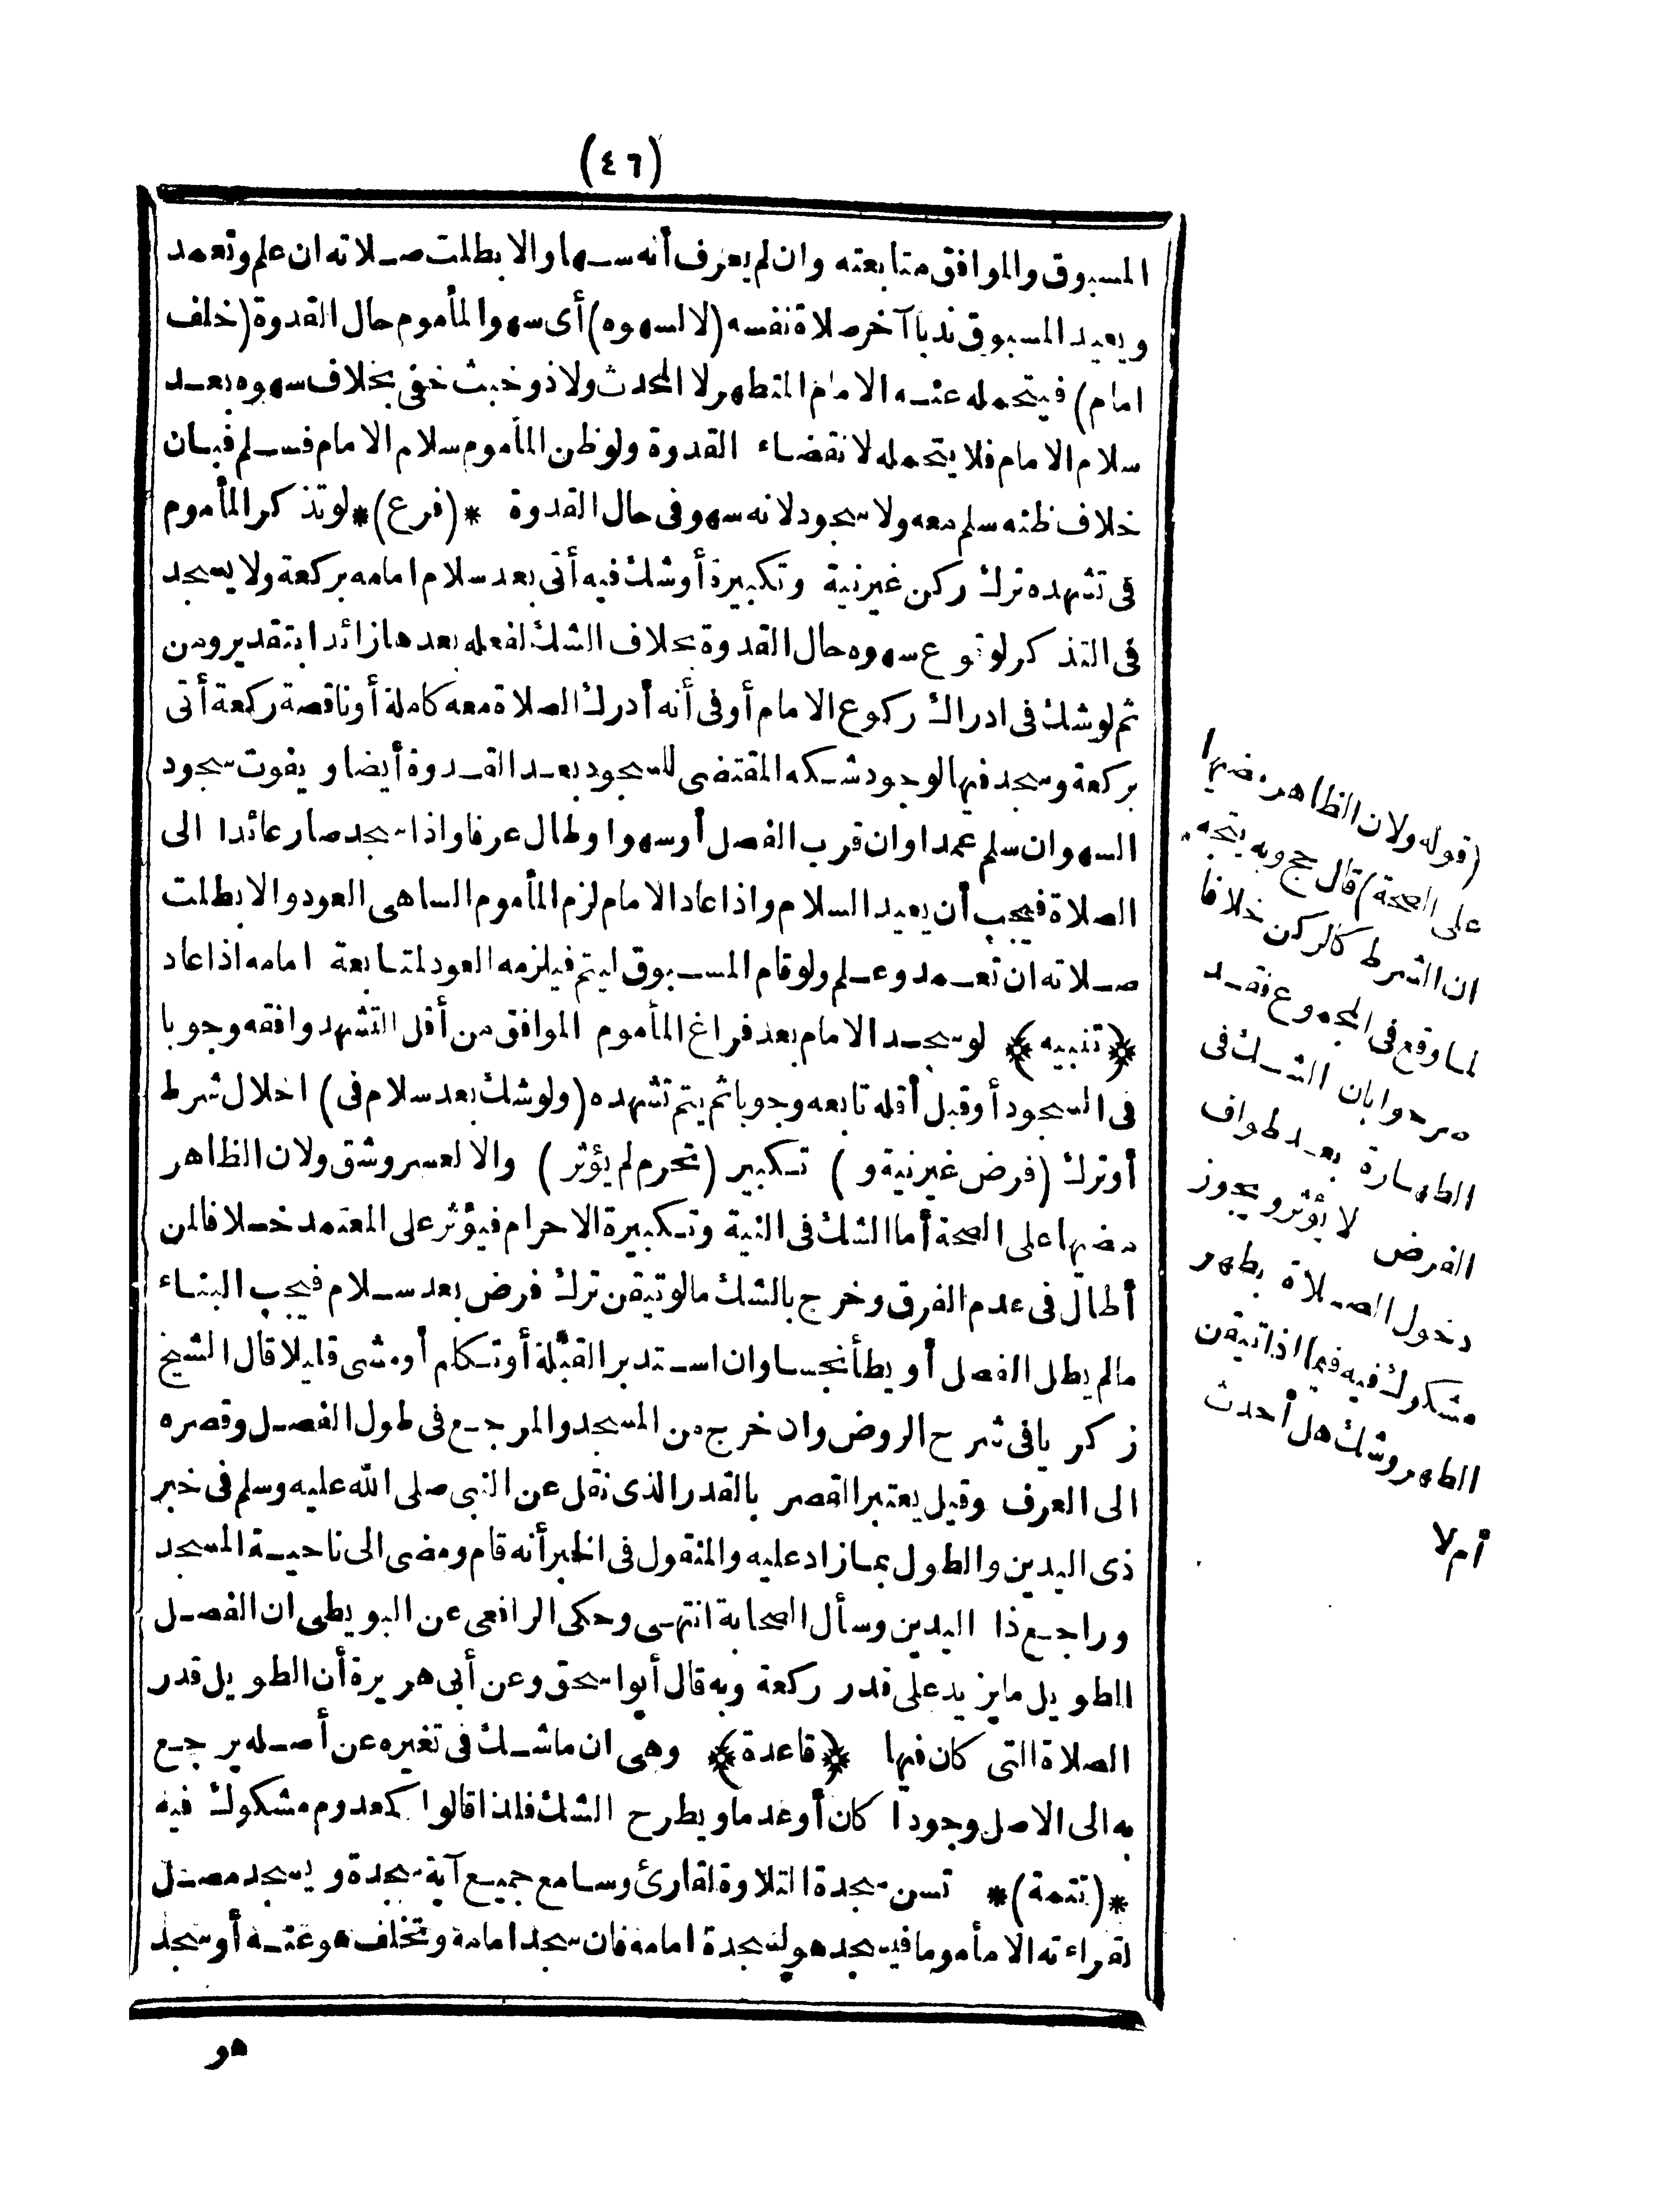 (٤٦)
المسبوق والموافق متابعته وان لم يعرف أنه سها والا بطلت صلاته ان علم وتعمد
ويعيد المسبوق ندبا آخر صلاة نفسه (لا لسهوه) أى سهو المأموم حال القدوة (خلف
امام) فيتحمله عنه الامام المتطهر لا المحدث ولا ذو خبث خفى بخلاف سهوه بعد
سلام الامام فلا يتحمله لانقضاء القدوة ولو ظن المأموم سلام الامام فسلم فبان
خلاف ظنه سلم معه ولا سجود لانه سهو فى حال القدوة *(فرع)* لو تذكر المأموم
فى تشهده ترك ركن غير نية وتكبيرة أو شك فيه أتى بعد سلام امامه بركعة ولا يسجد
فى التذكر لوقوع سهوه حال القدوة بخلاف الشك لفعله بعدها زائدا بتقدير ومن
ثم لو شك فى ادراك ركوع الامام أو فى أنه أدرك الصلاة معه كاملة أو ناقصة ركعة أتى
بركعة وسجد فيها لوجود شكه المقتضى للسجود بعد القدوة أيضا ويفوت سجود
السهو ان سلم عمدا وان قرب الفصل أو سهوا وطال عرفا واذا سجد صار عائدا الى
الصلاة فيجب أن يعيد السلام واذا عاد الامام لزم المأموم الساهى العود والا بطلت
صلاته ان تعمد وعلم ولو قام المسبوق ليتم فيلزمه العود لمتابعة امامه اذا عاد
﴿تنبيه﴾ لو سجد الامام بعد فراغ المأموم الموافق من أقل التشهد وافقه وجوبا
فى السجود أو قبل أقله تابعه وجوبا ثم يتم تشهده (ولو شك بعد سلام فى) اخلال شرط
أو ترك (فرض غير نية و) تكبير (تحرم لم يؤثر) والا لعسر وشق ولان الظاهر
مضيها على الصحة أما الشك فى النية وتكبيرة الاحرام فيؤثر على المعتمد خلافا لمن
أطال فى عدم الفرق وخرج بالشك ما لو تيقن ترك فرض بعد سلام فيجب البناء
مالم يطل الفصل أو يطأ نجسا وان استدبر القبلة أو تكلم أو مشى قليلا قال الشيخ
زكريا فى شرح الروض وان خرج من المسجد والمرجع فى طول الفصل وقصره
الى العرف وقيل يعتبر القصر بالقدر الذى نقل عن النبى صلى الله عليه وسلم فى خبر
ذى اليدين والطول بما زاد عليه والمنقول فى الخبر أنه قام ومضى الى ناحية المسجد
وراجع ذا اليدين وسأل الصحابة انتهى وحكى الرافعى عن البويطى ان الفصل
الطويل ما يزيد على قدر ركعة وبه قال أبو اسحق وعن أبى هريرة أن الطويل قدر
الصلاة التى كان فيها ﴿قاعدة﴾ وهى ان ما شك فى تغيره عن أصله يرجع
به الى الاصل وجودا كان أو عدما ويطرح الشك فلذا قالوا كمعدوم مشكوك فيه
*(تتمة)* تسن سجدة التلاوة لقارئ وسامع جميع آية سجدة ويسجد مصل
لقراءته الا مأموما فيسجد هو لسجدة امامه فان سجد امامه وتخلف هو عنه أو سجد
هو
(قوله ولان الظاهر مضيها
على الصحة) قال حج وبه يتجه
ان الشرط كالركن خلافا
لما وقع فى المجموع فقد
صرحوا بان الشك فى
الطهارة بعد طواف
الفرض لا يؤثر ويجوز
دخول الصلاة بطهر
مشكوك فيه فيما اذا تيقن
الطهر وشك هل أحدث
أم لا